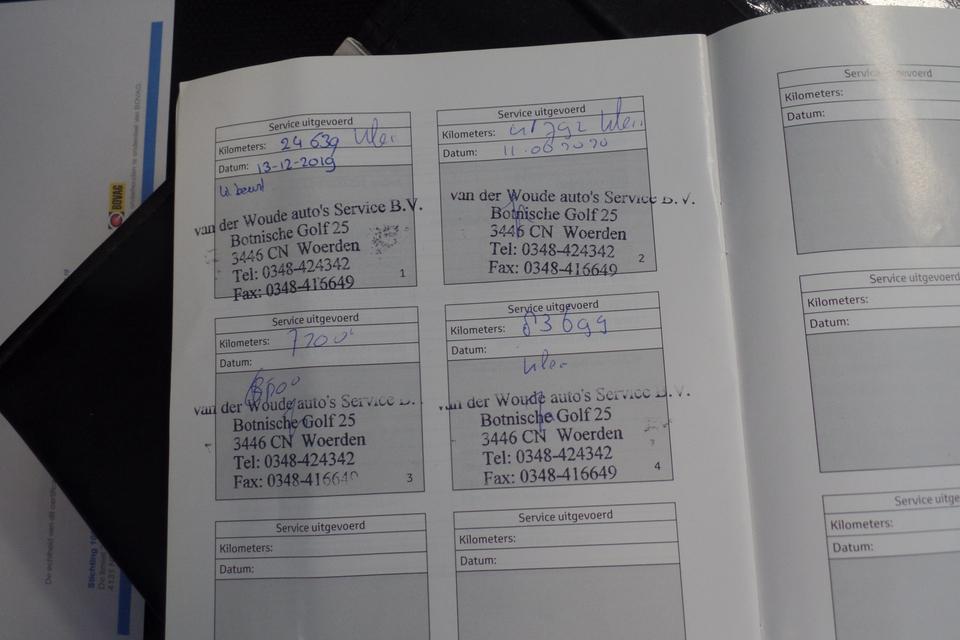 BOVAG
Service uitgevoerd
Kilometers: 24 639 klein
Datum: 13-12-2019
van der Woude auto's Service B.V.
Botnische Golf 25
3446 CN Woerden
Tel: 0348-424342
Fax: 0348-416649
1
Service uitgevoerd
Kilometers:
Datum: 11.06 2020
van der Woude auto's Service B.V.
Botnische Golf 25
3446 CN Woerden
Tel: 0348-424342
Fax: 0348-416649
2
Service uitgevoerd
Kilometers:
Datum:
van der Woude auto's Service B.
Botnische Golf 25
3446 CN Woerden
Tel: 0348-424342
Fax: 0348-416649
3
Service uitgevoerd
Kilometers: 83699
Datum:
van der Woude auto's Service B.V.
Botnische Golf 25
3446 CN Woerden
Tel: 0348-424342
Fax: 0348-416649
4
Service uitgevoerd
Kilometers:
Datum:
Service uitgevoerd
Kilometers:
Datum:
Service uitgevoerd
Kilometers:
Datum:
Service uitgevoerd
Kilometers:
Datum:
Service uitge
Kilometers:
Datum: